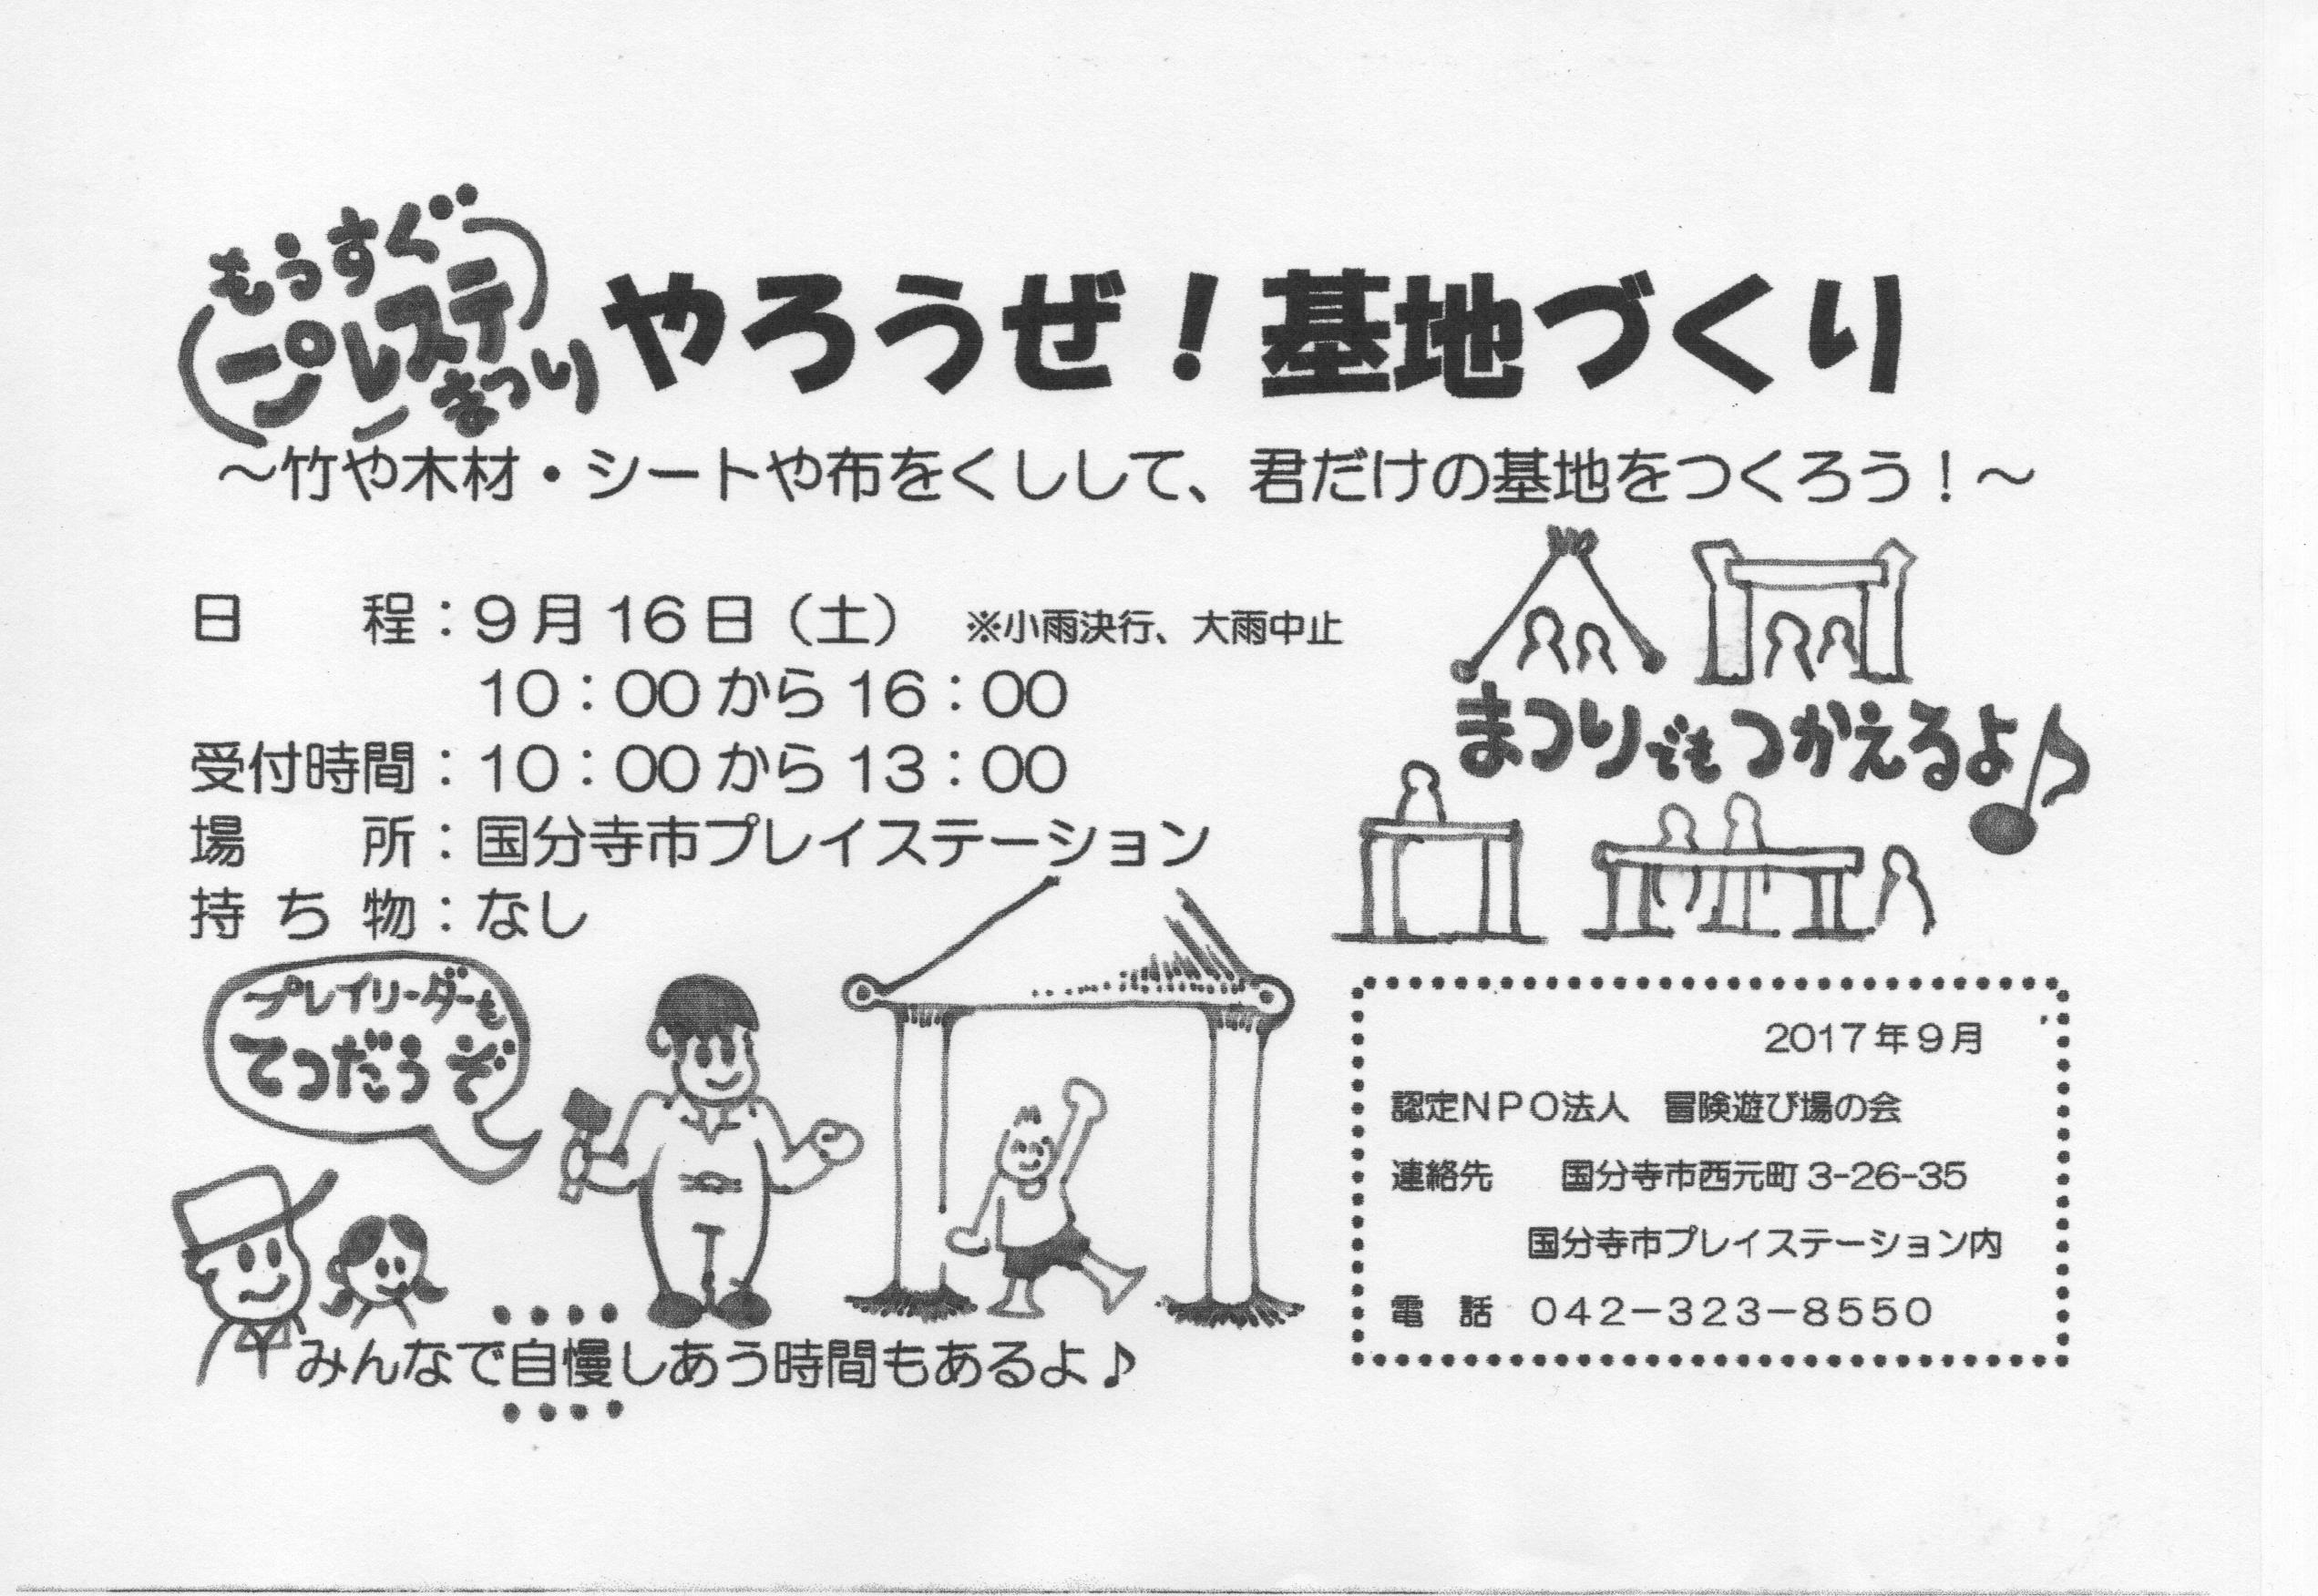 もうすぐ
プレステ
まつり
やろうぜ！基地づくり
～竹や木材・シートや布をくしして、君だけの基地をつくろう！～
日　　程：９月16日（土）　※小雨決行、大雨中止
10：00から16：00
受付時間：10：00から13：00
場　　所：国分寺市プレイステーション
持 ち 物：なし
まつりでもつかえるよ♪
プレイリーダーも
てつだうぞ
みんなで自慢しあう時間もあるよ♪
2017年９月
認定ＮＰＯ法人　冒険遊び場の会
連絡先　　国分寺市西元町3-26-35
国分寺市プレイステーション内
電　話　０４２－３２３－８５５０